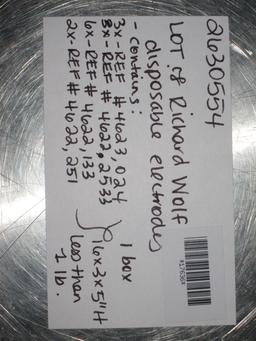 2630554
LOT of Richard Wolf
disposable electrodes
- contains:
3x - REF # 4623,024
8x - REF # 4622,2533
6x - REF # 4622,133
2x - REF # 4622,251
1 box
16x3x5"H
less than
1 lb.